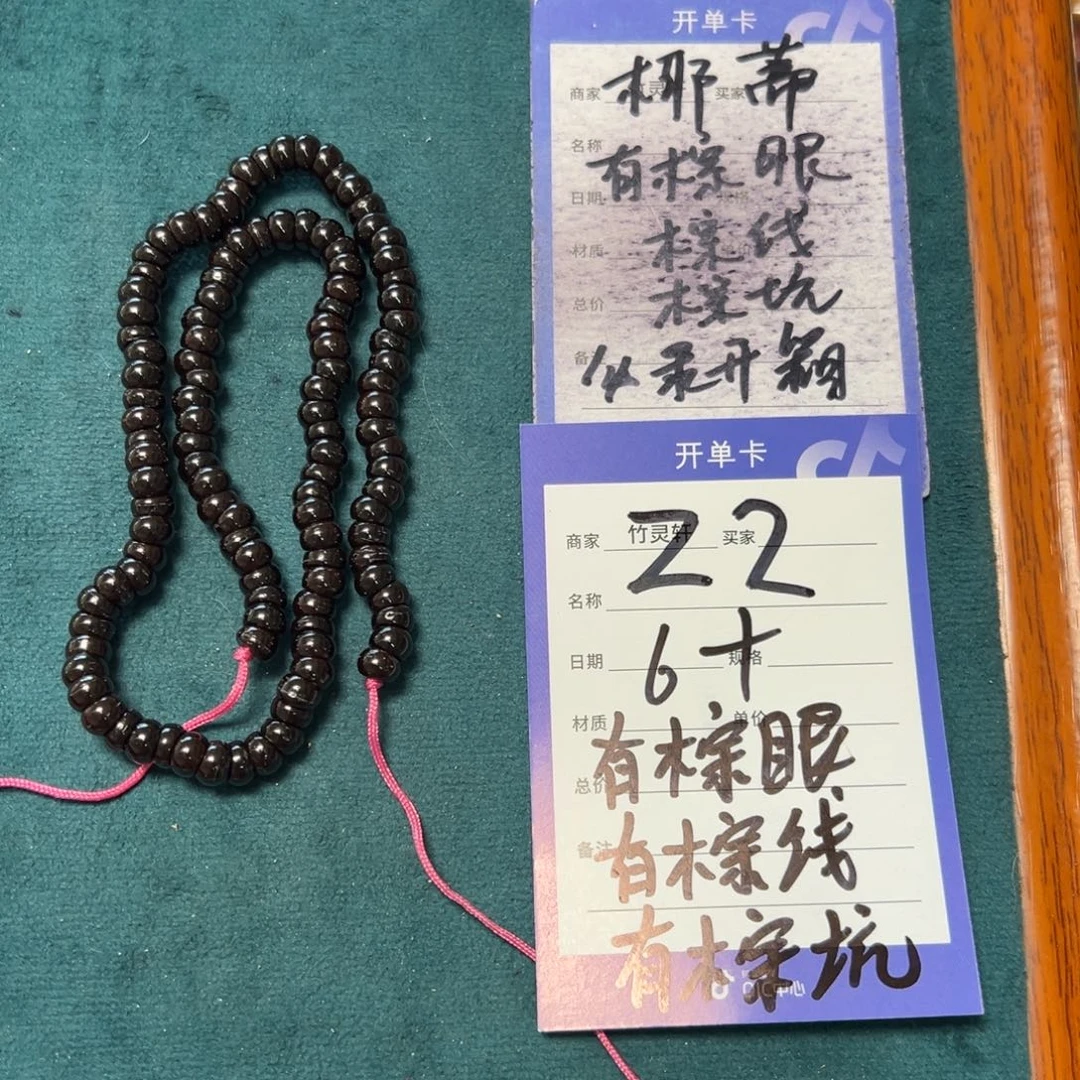 开单卡
椰蒂
商家 买家
名称
有棕眼
日期
棕线
材质
棕坑
总价
必录开箱
开单卡
商家 竹灵轩 买家
Z2
名称
6十
日期 规格
材质 单价
有棕眼
总价
有棕线
备注
有棕坑